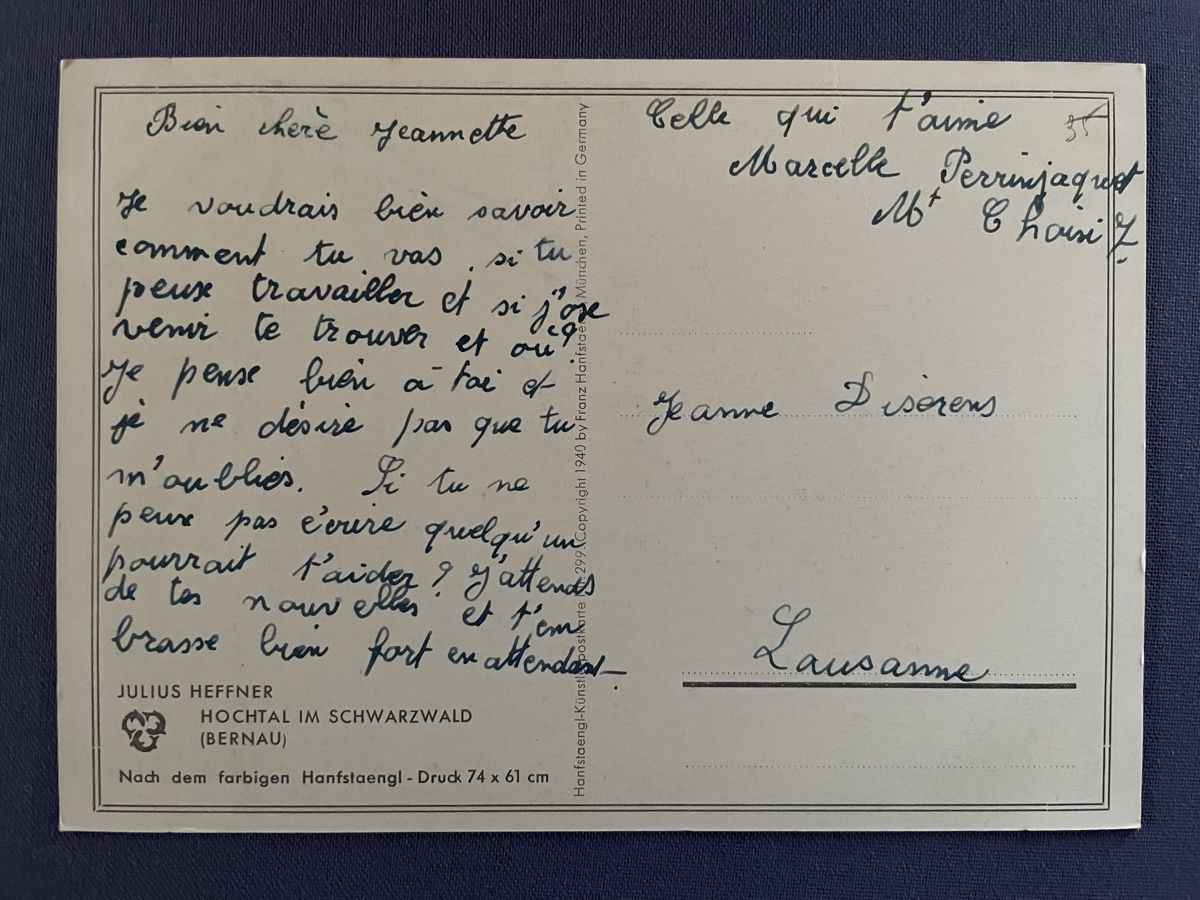 Bien chère Jeannette
Je voudrais bien savoir
comment tu vas, si tu
peux travailler et si j'ose
venir te trouver et où?
Je pense bien à toi et
je ne désire pas que tu
m'oublies. Si tu ne
peux pas écrire quelqu'un
pourrait t'aider? J'attends
de tes nouvelles et t'em
brasse bien fort en attendant
JULIUS HEFFNER
HOCHTAL IM SCHWARZWALD
(BERNAU)
Nach dem farbigen Hanfstaengl - Druck 74 x 61 cm
Hanfstaengl-Künstlerpostkarte 299. Copyright 1940 by Franz Hanfstaengl, München, Printed in Germany
Celle qui t'aime
35
Marcelle Perrinjaquet
Mt Choisi 7
Jeanne Diserens
Lausanne